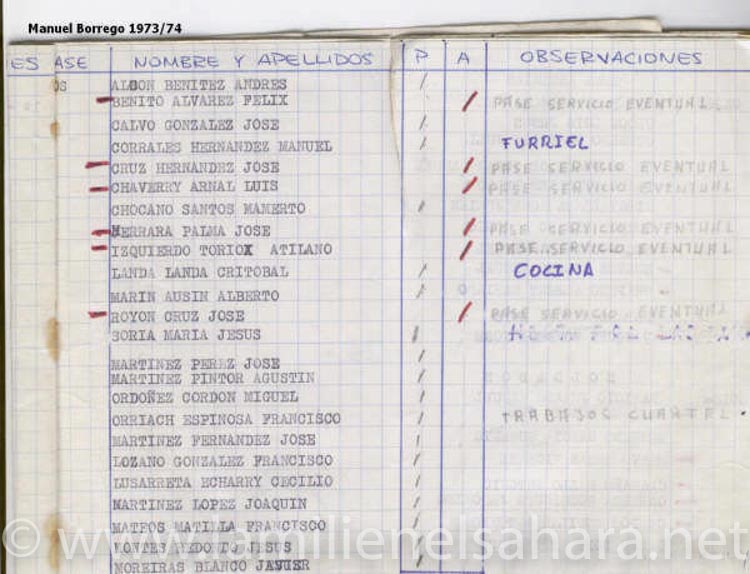 Manuel Borrego 1973/74
ES ASE NOMBRE Y APELLIDOS P A OBSERVACIONES
OS ALCON BENITEZ ANDRES /
- BENITO ALVAREZ FELIX / PASE SERVICIO EVENTUAL
CALVO GONZALEZ JOSE /
CORRALES HERNANDEZ MANUEL / FURRIEL
- CRUZ HERNANDEZ JOSE / PASE SERVICIO EVENTUAL
- CHAVERRY ARNAL LUIS / PASE SERVICIO EVENTUAL
CHOCANO SANTOS MAMERTO /
- HERRARA PALMA JOSE / PASE SERVICIO EVENTUAL
- IZQUIERDO TORIOX ATILANO / PASE SERVICIO EVENTUAL
LANDA LANDA CRITOBAL / COCINA
MARIN AUSIN ALBERTO / O
- ROYON CRUZ JOSE / PASE SERVICIO EVENTUAL
SORIA MARIA JESUS /
MARTINEZ PEREZ JOSE /
MARTINEZ PINTOR AGUSTIN /
ORDOÑEZ GORDON MIGUEL /
ORRIACH ESPINOSA FRANCISCO / TRABAJOS CUARTEL.
MARTINEZ FERNANDEZ JOSE /
LOZANO GONZALEZ FRANCISCO /
LUSARRETA ECHARRY CECILIO /
MARTINEZ LOPEZ JOAQUIN /
MATEOS MATILLA FRANCISCO /
MONTES REDONTO JESUS /
MOREIRAS BLANCO JAVIER /
© www.lamilienelsahara.net